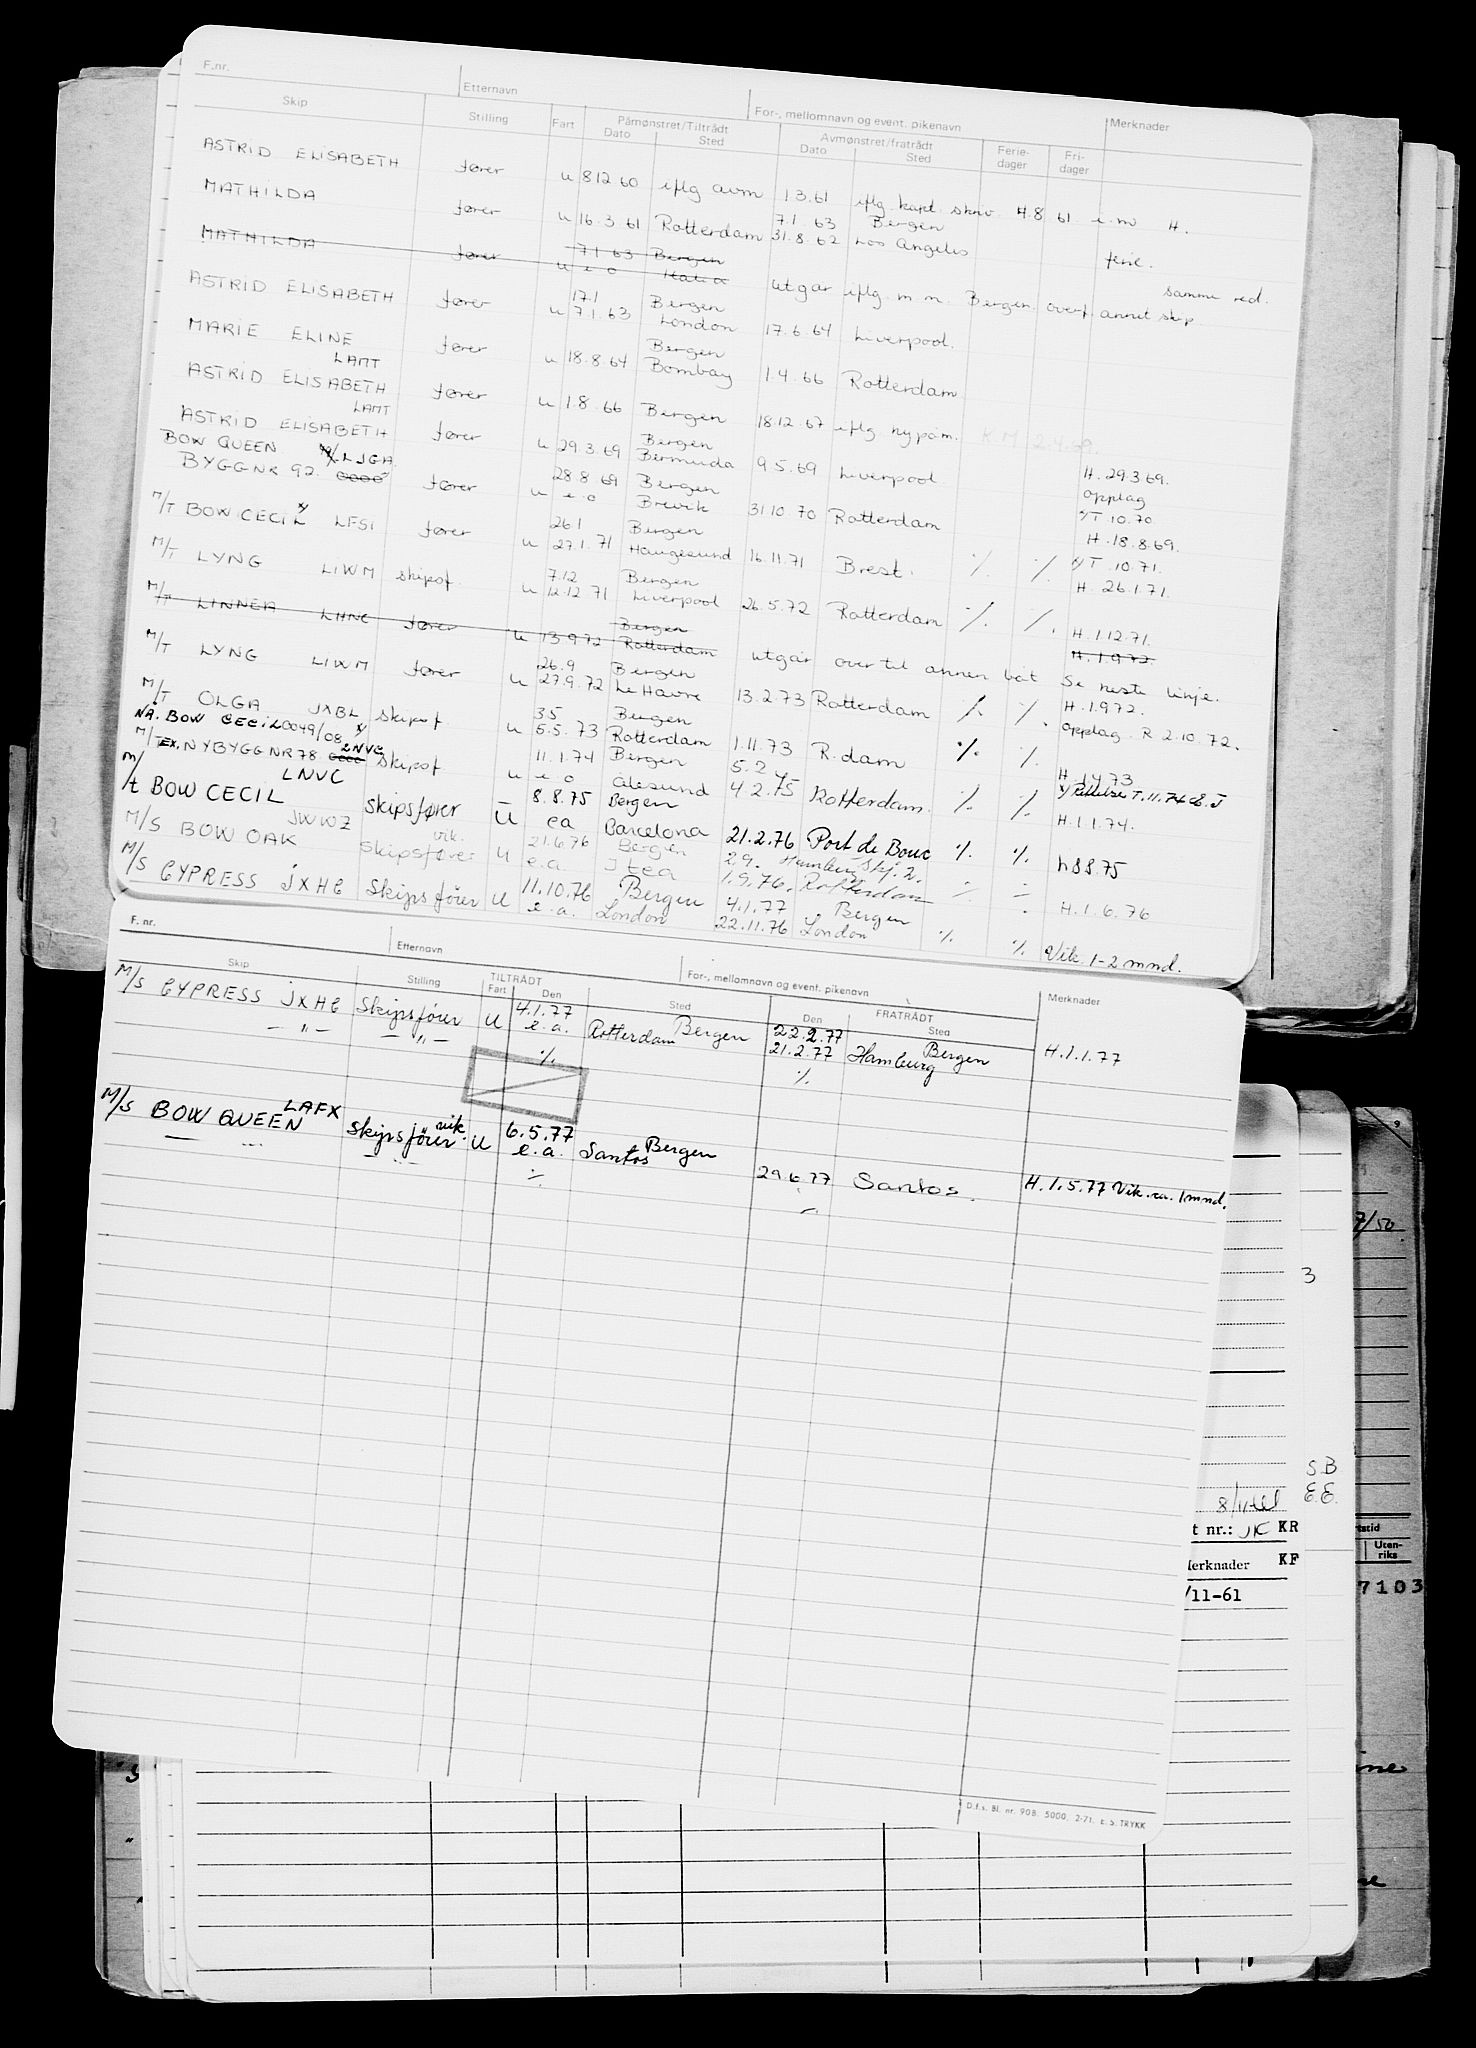 F.nr. Etternavn For-, mellomnavn og event. pikenavn Merknader
Skip Stilling Fart Påmønstret/Tiltrådt Dato Sted Avmønstret/fratrådt Dato Sted Ferie-dager Fri-dager
ASTRID ELISABETH fører u 8.12.60 iflg avm 1.3.61 iflg. kapt. skriv. 4.8.61 H.
MATHILDA fører u 16.3.61 Rotterdam 7.1.63 Bergen
31.8.62 Los Angeles ferie.
MATHILDA fører u 7.1.63 Bergen
e o utgår iflg. m.m. Bergen overf. annet skip samme red.
ASTRID ELISABETH fører u 17.1 Bergen
7.1.63 London 17.6.64 Liverpool.
MARIE ELINE LAMT fører u 18.8.64 Bergen
Bombay 1.4.66 Rotterdam
ASTRID ELISABETH LAMT fører u 1.8.66 Bergen 18.12.67 iflg nypåm. K.M. 2.4.69.
ASTRID ELISABETH fører u 29.3.69 Bergen
Bermuda 9.5.69 Liverpool H. 29.3.69.
opplag
BOW QUEEN LJGA
BYGGNR 92. fører u 28.8.69 Bergen
e o Brevik 31.10.70 Rotterdam x/T. 10.70.
H. 18.8.69.
M/T BOW CECIL x/ LFSI fører u 26.1 Bergen
27.1.71 Haugesund 16.11.71 Brest. ٪ ٪ x/T. 10.71.
H. 26.1.71.
M/T LYNG LIWM skipsf. u 7.12 Bergen
12.12.71 Liverpool 26.5.72 Rotterdam ٪ ٪. H. 1.12.71.
M/T LINNEA LHNC fører u 13.9.72 Bergen
Rotterdam utgår over til annen båt Se neste linje. H. 1.9.72.
M/T LYNG LIWM fører u 26.9 Bergen
27.9.72 Le Havre 13.2.73 Rotterdam ٪ ٪. H. 1.9.72.
opplag. R 2.10.72.
M/T OLGA JXBL skipsf. u 3.5 Bergen
5.5.73 Rotterdam 1.11.73 R.dam ٪ ٪. H. 1.4.73
NÅ. BOW CECIL 0049/08 x/ LNVC
M/T EX. NYBYGG NR 78 skipsf u 11.1.74 Bergen 5.2
e o Ålesund 4.2.75 Rotterdam. ٪ ٪ H. 1.1.74.
M/t BOW CECIL LNVC skipsfører U 8.8.75 Bergen
ea Barcelona 21.2.76 Port de Bouc ٪ ٪ h 8 8.75
M/S BOW OAK JWWZ skipsfører vik. U 21.6.76 Bergen 2.9. Hamburg
e.a. Itea 1.9.76. Rotterdam ٪ H. 1.6.76
M/S CYPRESS JXHC Skipsfører U 11.10.76 Bergen 4.1.77 Bergen
e.a. London 22.11.76 London ٪ ٪ Vik. 1-2 mnd.
F. nr. Etternavn For-, mellomnavn og event. pikenavn Merknader
Skip Stilling TILTRÅDT Fart Den Sted FRATRÅDT Den Sted
M/S CYPRESS JXHC Skipsfører U 4.1.77 Bergen 22.2.77 Bergen H.1.1.77
— „ — — „ — e.a. Rotterdam 21.2.77 Hamburg
٪ ٪
M/S BOW QUEEN LAFX Skipsfører vik. U 6.5.77 Bergen
e.a. Santos 29.6.77 Santos. H. 1.5.77 Vik. ca. 1 mnd.
7/50
3
S.B
E.E.
t nr.: JK KR
Merknader KF
Uten-riks
/11-61 7103
D.f.s. Bl. nr. 908. 5000. 2-71. E. S. TRYKK